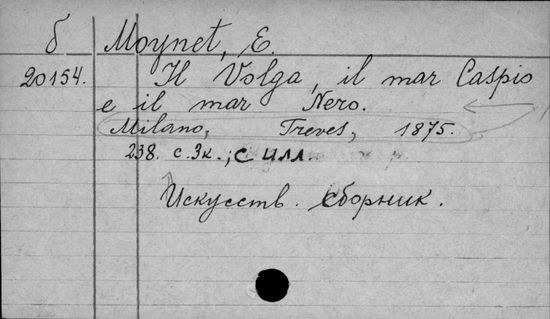 б Moynet, E.
20154. Il Volga, il mar Caspio
e il mar Nero.
Milano, Treves, 1875.
238. с. 3к.; с илл.
Искусств. сборник.